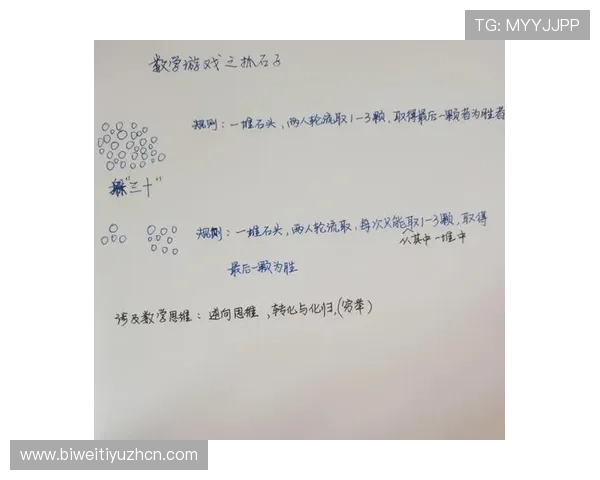 TG: MYYJJPP
数学游戏之抓石子
规则：一堆石头，两人轮流取1-3颗，取得最后一颗者为胜者
"三十"
规则：一堆石头，两人轮流取，每次只能取1-3颗，取得
从其中一堆中
最后一颗为胜
涉及数学思维：逆向思维，转化与化归，(穷举)
www.biweitiyuzhcn.com